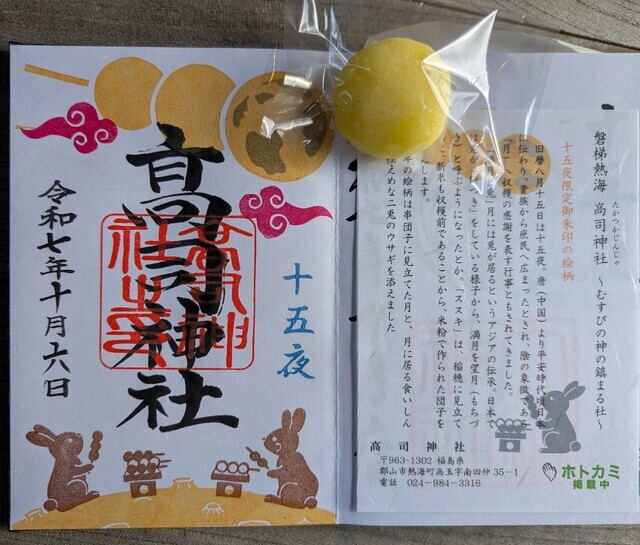 高司神社
十五夜
令和七年十月六日
高司神社之印
たかつかじんじゃ
磐梯熱海 高司神社 ～むすびの神の鎮まる社～
十五夜限定御朱印の絵柄
旧暦八月十五日は十五夜。唐（中国）より平安時代頃日本
に伝わり、貴族から庶民へ広まったとされ、陰の象徴である
「月」へ収穫の感謝を表す行事ともされてきました。
月には兎が居るというアジアの伝承。日本で
つき」をしている様子から、満月を望月（もちづ
き）と呼ぶようになったとか。「ススキ」は、稲穂に見立て
、新米も収穫前であることから、米粉で作られた団子を
します。
の絵柄は串団子に見立てた月と、月に居る食いしん
控えめな二兎のウサギを添えました
高司神社
〒963-1302 福島県
郡山市熱海町高玉字南田仲35-1
電話 024-984-3316
ホトカミ
掲載中